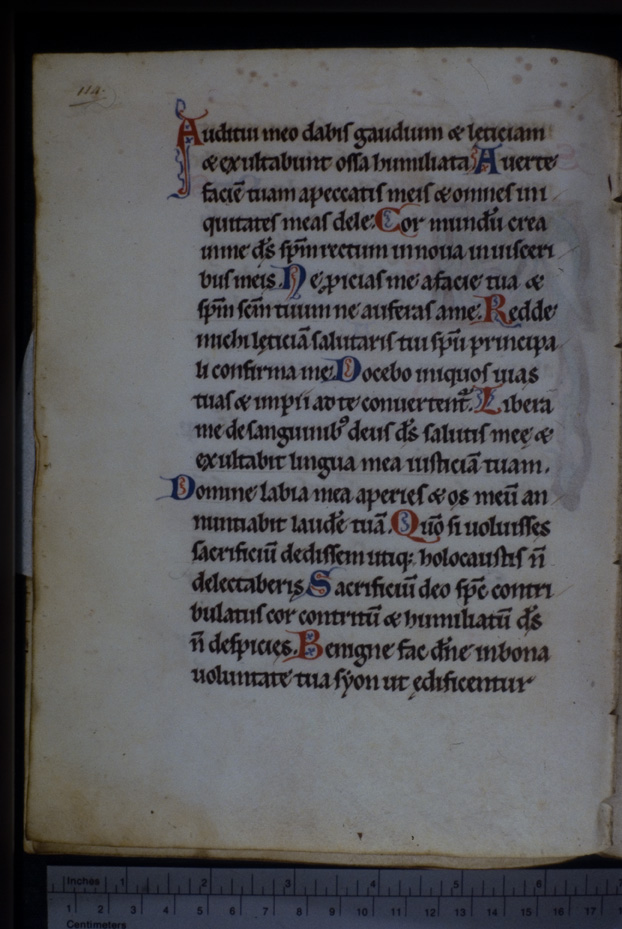 114.
Auditui meo dabis gaudium & leticiam
& exultabunt ossa humiliata. Auerte
faciē tuam a peccatis meis & omnes ini
quitates meas dele. Cor mundū crea
in me dš spm̄ rectum innoua in uisceri
bus meis. Ne picias me a facie tua &
spm̄ scm̄ tuum ne auferas a me. Redde
michi lęticiā salutaris tui spū principa
li confirma me. Docebo iniquos uias
tuas & impii ad te conuertent̄. Libera
me de sanguinib9 deus dš salutis meę &
exultabit lingua mea iusticiā tuam.
Domine labia mea aperies & os meū an
nuntiabit laudē tuā. Qūo si uoluisses
sacrificiū dedissem utiq; holocaustis n̄
delectaberis. Sacrificiū deo spc̄ contri
bulatus cor contritū & humiliatū dš
n̄ despicies. Benigne fac dn̄e in bona
uoluntate tua syon ut ędificentur
Inches 1 2 3 4 5 6
1 2 3 4 5 6 7 8 9 10 11 12 13 14 15 16 17
Centimeters